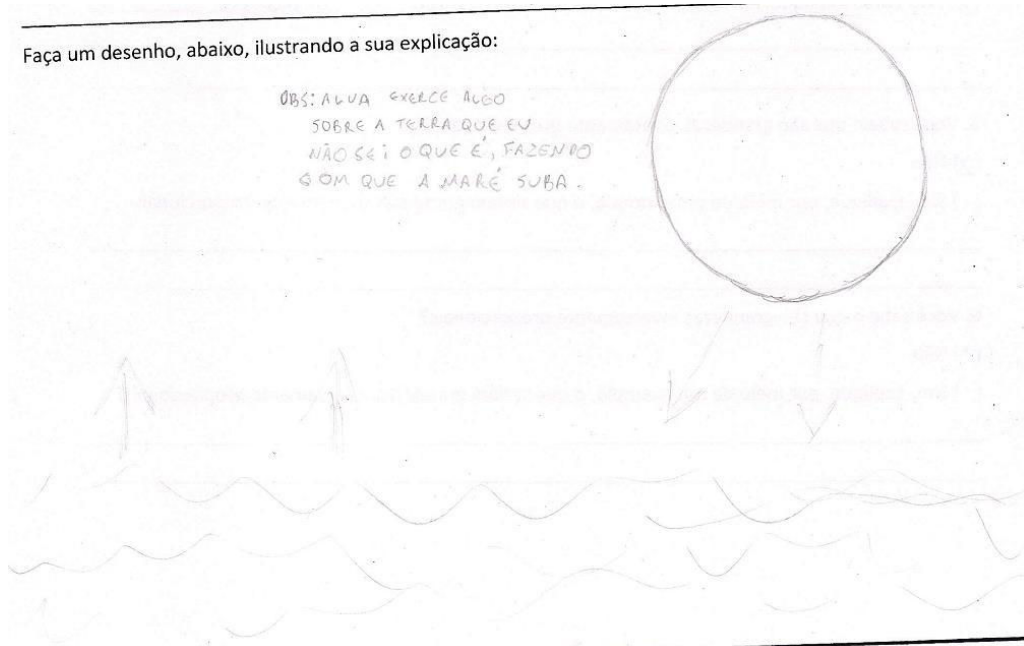 Faça um desenho, abaixo, ilustrando a sua explicação:
OBS: A LUA EXERCE ALGO
SOBRE A TERRA QUE EU
NÃO SEI O QUE É, FAZENDO
COM QUE A MARÉ SUBA.